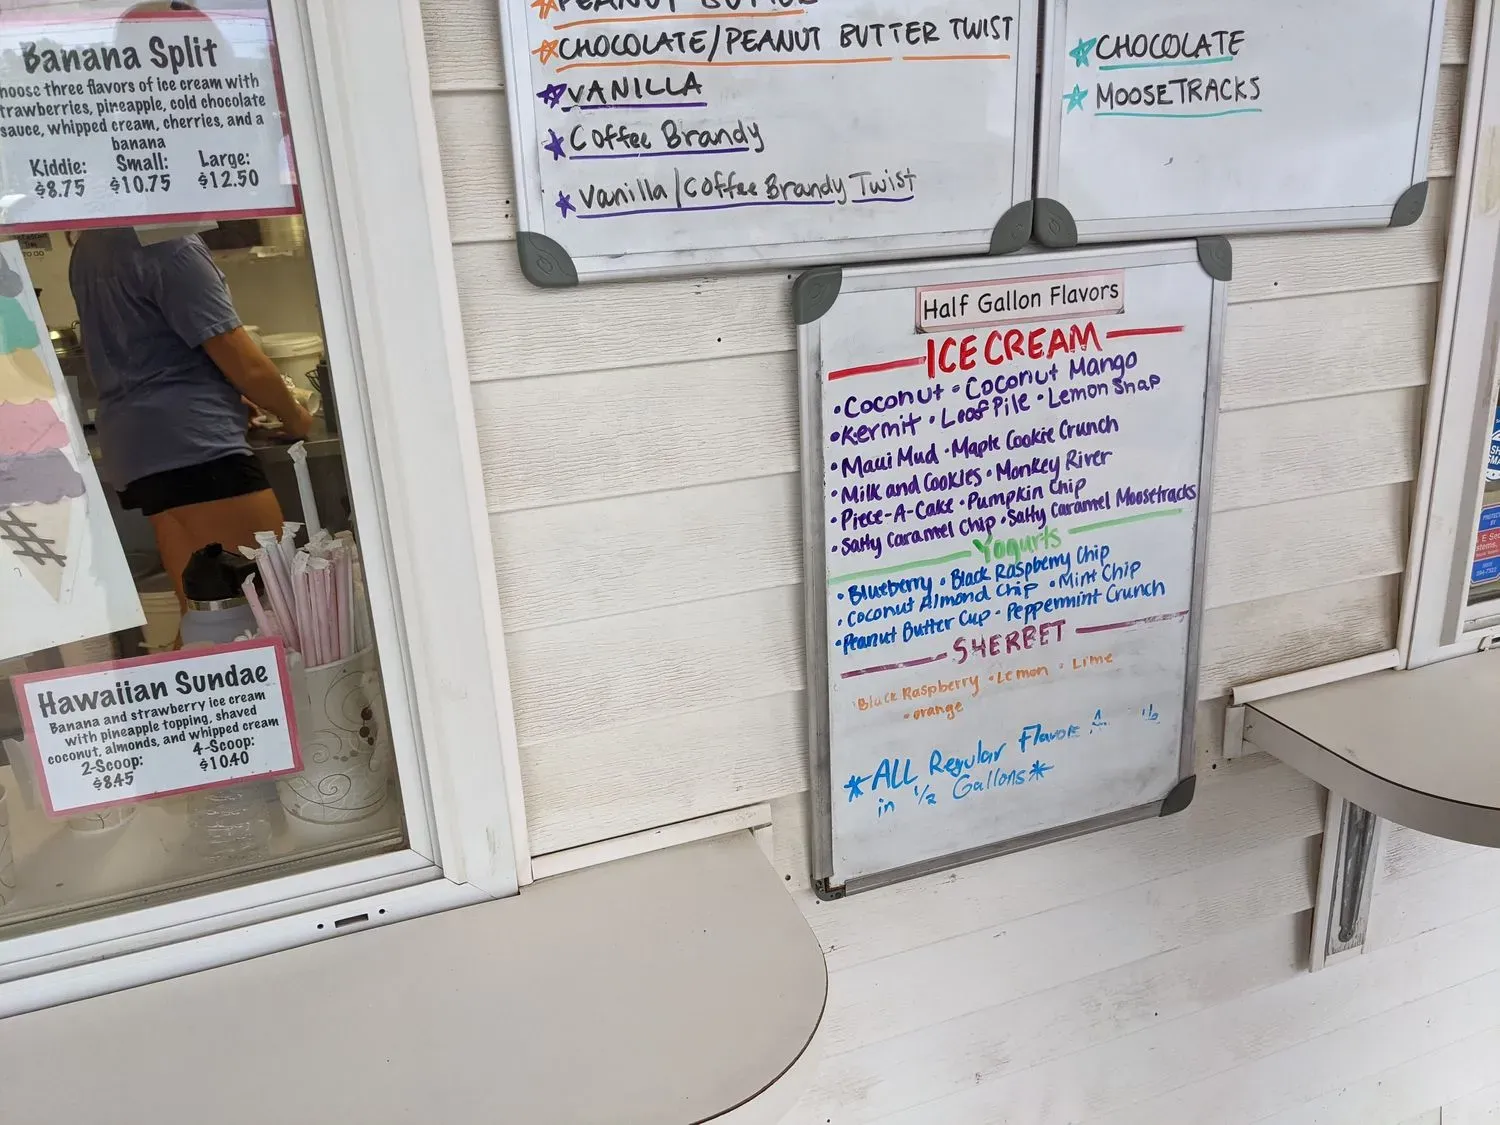 Banana Split
hoose three flavors of ice cream with
trawberries, pineapple, cold chocolate
sauce, whipped cream, cherries, and a
banana
Kiddie: Small: Large:
$8.75 $10.75 $12.50
Hawaiian Sundae
Banana and strawberry ice cream
with pineapple topping, shaved
coconut, almonds, and whipped cream
2-Scoop: 4-Scoop:
$8.45 $10.40
PEANUT BUTTER
CHOCOLATE/PEANUT BUTTER TWIST
VANILLA
Coffee Brandy
Vanilla/Coffee Brandy Twist
CHOCOLATE
MOOSETRACKS
Half Gallon Flavors
ICE CREAM
• Coconut • Coconut Mango
• Kermit • Leaf Pile • Lemon Snap
• Maui Mud • Maple Cookie Crunch
• Milk and Cookies • Monkey River
• Piece-A-Cake • Pumpkin Chip
• Salty Caramel Chip • Salty Caramel Moosetracks
Yogurts
• Blueberry • Black Raspberry Chip
• Coconut Almond Chip • Mint Chip
• Peanut Butter Cup • Peppermint Crunch
SHERBET
• Black Raspberry • Lemon • Lime
• orange
*ALL Regular Flavors
in 1/2 Gallons*